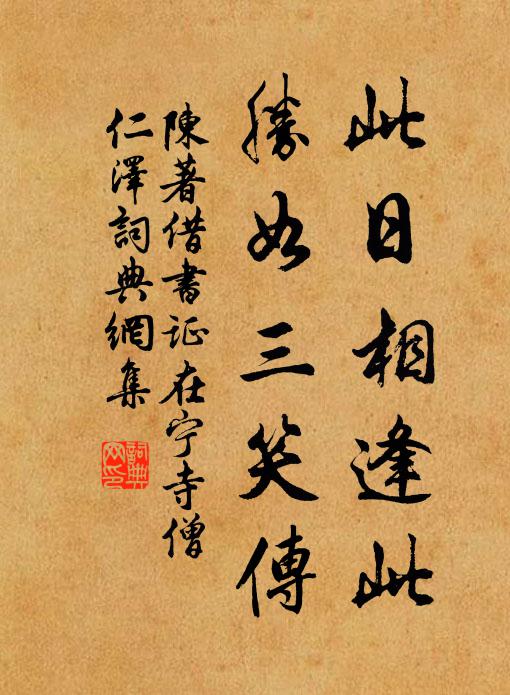 此日相逢此
勝如三笑傳
陳著借書证在宁寺僧
仁澤詞典網集
詞典
网印